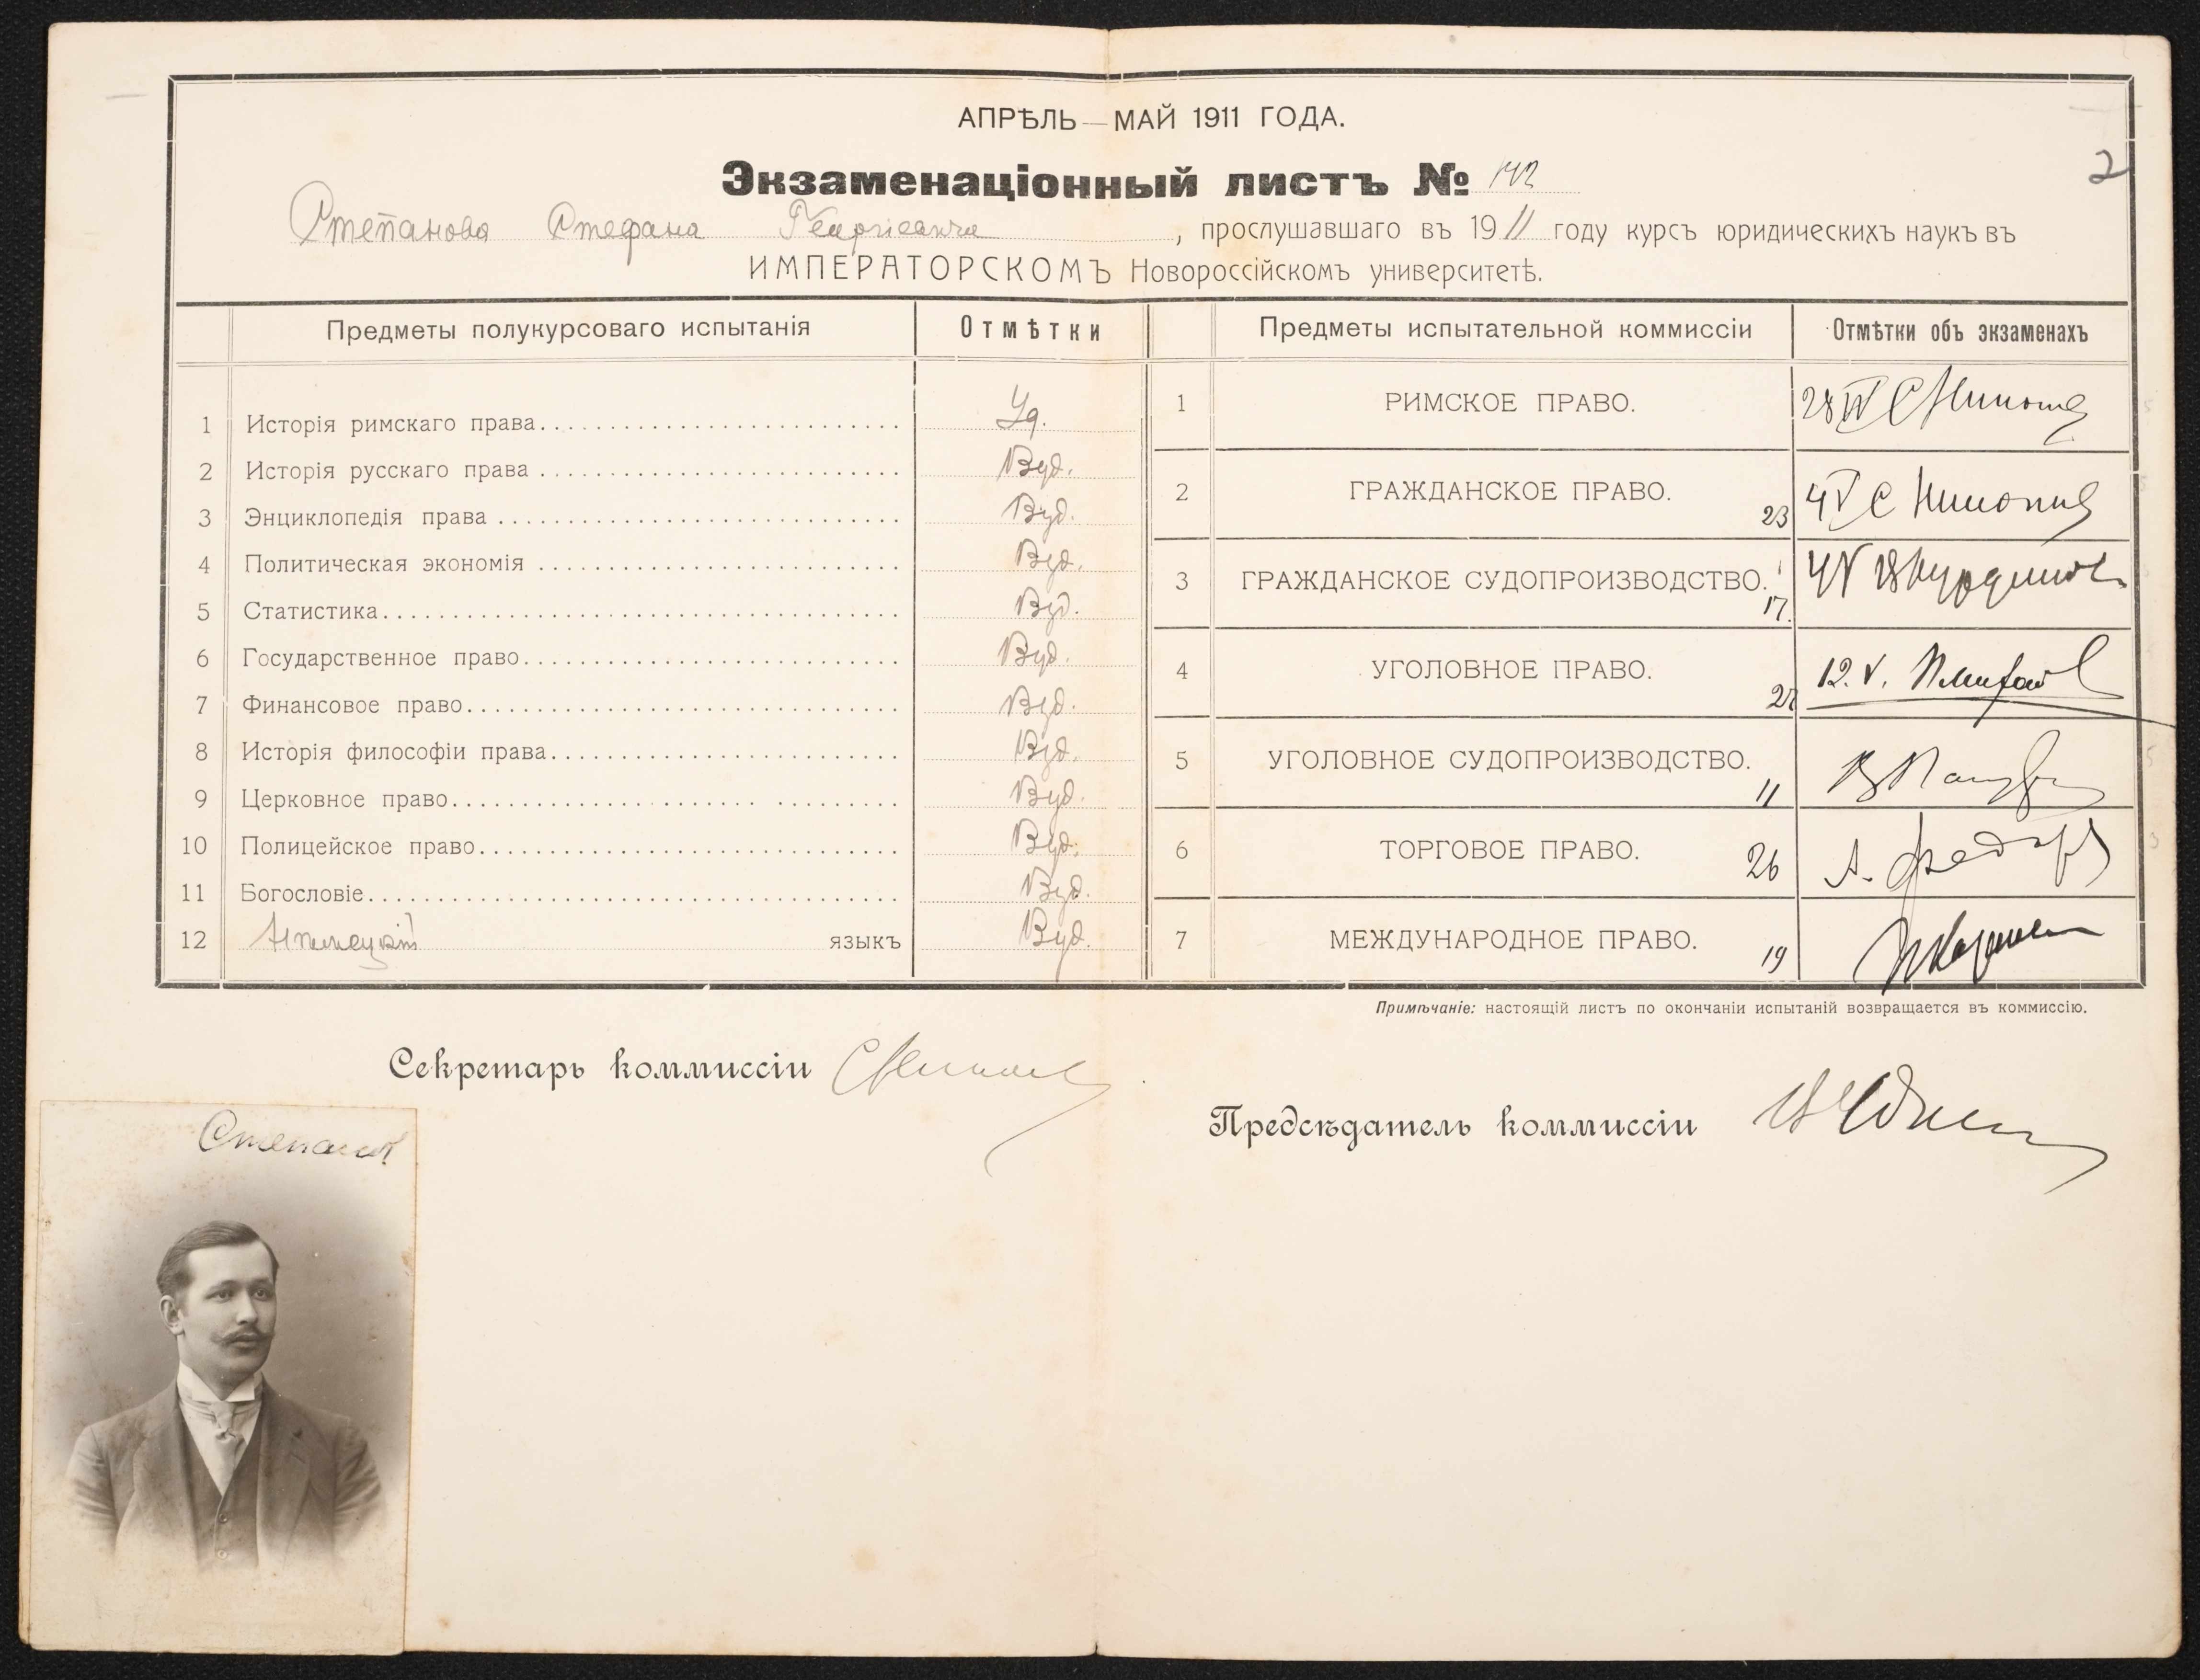 АПРѢЛЬ — МАЙ 1911 ГОДА.
2
Экзаменаціонный листъ № 142
Степанова Стефана Георгіевича, прослушавшаго въ 1911 году курсъ юридическихъ наукъ въ
ИМПЕРАТОРСКОМЪ Новороссійскомъ университетѣ.
Предметы полукурсоваго испытанія Отмѣтки
1 Исторія римскаго права Уд.
2 Исторія русскаго права Вуд.
3 Энциклопедія права Вуд.
4 Политическая экономія Вуд.
5 Статистика Вуд.
6 Государственное право Вуд.
7 Финансовое право Вуд.
8 Исторія философіи права Вуд.
9 Церковное право Вуд.
10 Полицейское право Вуд.
11 Богословіе Вуд.
12 Нѣмецкій языкъ Вуд.
Предметы испытательной коммиссіи Отмѣтки объ экзаменахъ
1 РИМСКОЕ ПРАВО. 28 IV
2 ГРАЖДАНСКОЕ ПРАВО. 23 4 V
3 ГРАЖДАНСКОЕ СУДОПРОИЗВОДСТВО. 17. 4 V
4 УГОЛОВНОЕ ПРАВО. 12. V.
5 УГОЛОВНОЕ СУДОПРОИЗВОДСТВО. 11
6 ТОРГОВОЕ ПРАВО. 26 А. Федоров
7 МЕЖДУНАРОДНОЕ ПРАВО. 19
Примѣчаніе: настоящій листъ по окончаніи испытаній возвращается въ коммиссію.
Секретарь коммиссіи
Предсѣдатель коммиссіи
Степанов